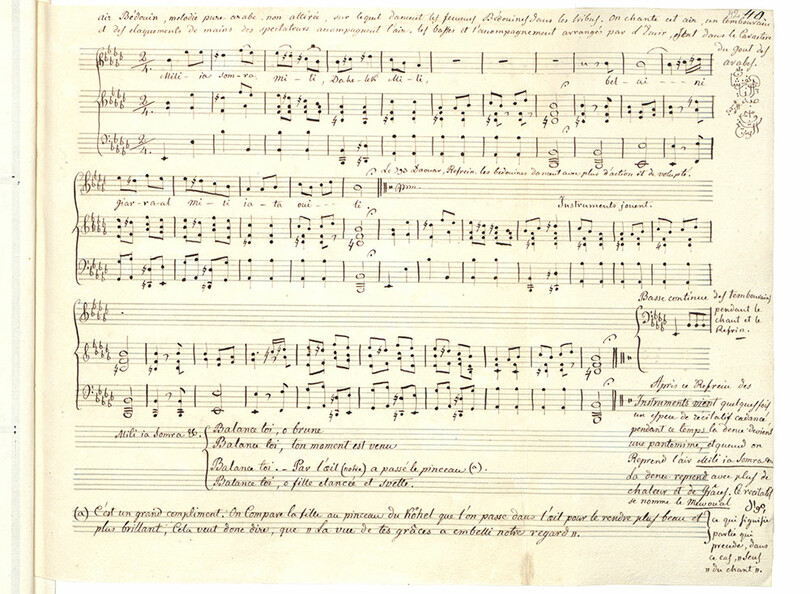 air Bédouin, mélodie pure arabe, non altérée, sur lequel dansent les femmes Bédouines dans les tribus. On chante cet air, un tambourin
et des claquements de mains des spectateurs accompagnent l'air. les basses et l'accompagnement arrangés par d'Inier, étant dans le Caractère
du gout des
arabes.
40.
2/4.
Mili-ia som-ra mi-li, Dahe-leh Mi-li,
bel-ai--ni
2/4.
2/4.
Daouar, Refrein, les bédouines dansent avec plus d'action et de volupté.
giar-ra-al mi-li ia-ta oui--li
Instruments jouent.
Basse continue des tambourins
pendant le
chant et le
Refrin.
Mili ia Somra &c.
Balance toi, o brune
Balance toi, ton moment est venu
Balance toi.-- Par l'œil (notre) a passé le pinceau (a).
Balance toi, o fille elancée et svelte.
Après ce Refrein des
Instruments vient quelquesfois
un espece de récitatif cadancé
pendant ce temps la danse devient
une pantomime, et quand on
Reprend l'air Mili ia Somra &c
La danse reprend avec plus de
chaleur et de Grâces. le récitatif
se nomme le Mewoual
ce qui signifie
partie qui
precede, dans
ce cas, "
" du chant ".
(a) C'est un grand compliment. On Compare la fille au pinceau du Kohel que l'on passe dans l'œil pour le rendre plus beau et
plus brillant, Cela veut donc dire, que " La vue de tes grâces a embelli notre regard ".